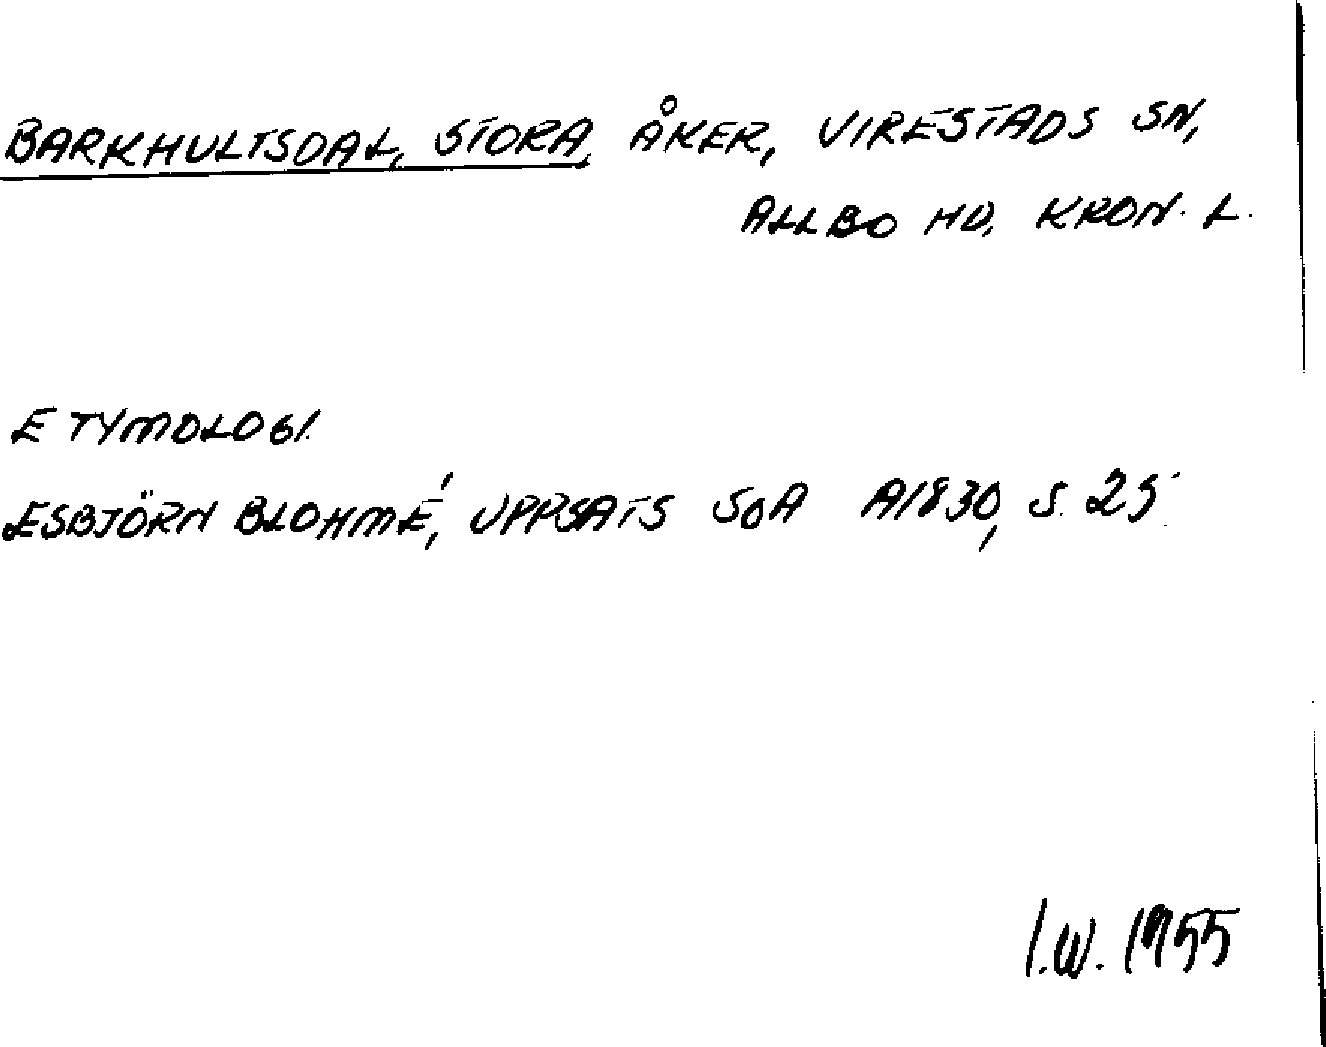 BARKHULTSDAL, STORA, ÅKER, VIRESTADS SN,
ALLBO HD, KRON. L.
ETYMOLOGI.
ESBJÖRN BLOHMÉ, UPPSATS SOA A1830, S. 25.
I.W. 1955